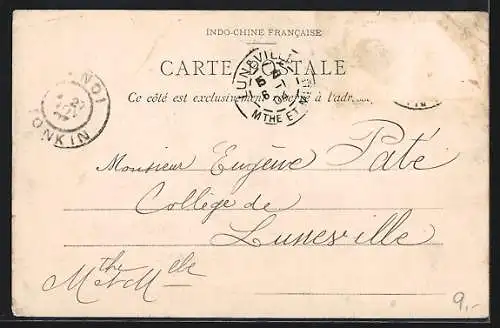 INDO-CHINE FRANÇAISE
CARTE POSTALE
Ce côté est exclusivement réservé à l'adr
HANOI
TONKIN
LUNÉVILLE
MTHE ET M
Monsieur Eugène Paté
Collège de
Luneville
Mthe et Mlle
9.-